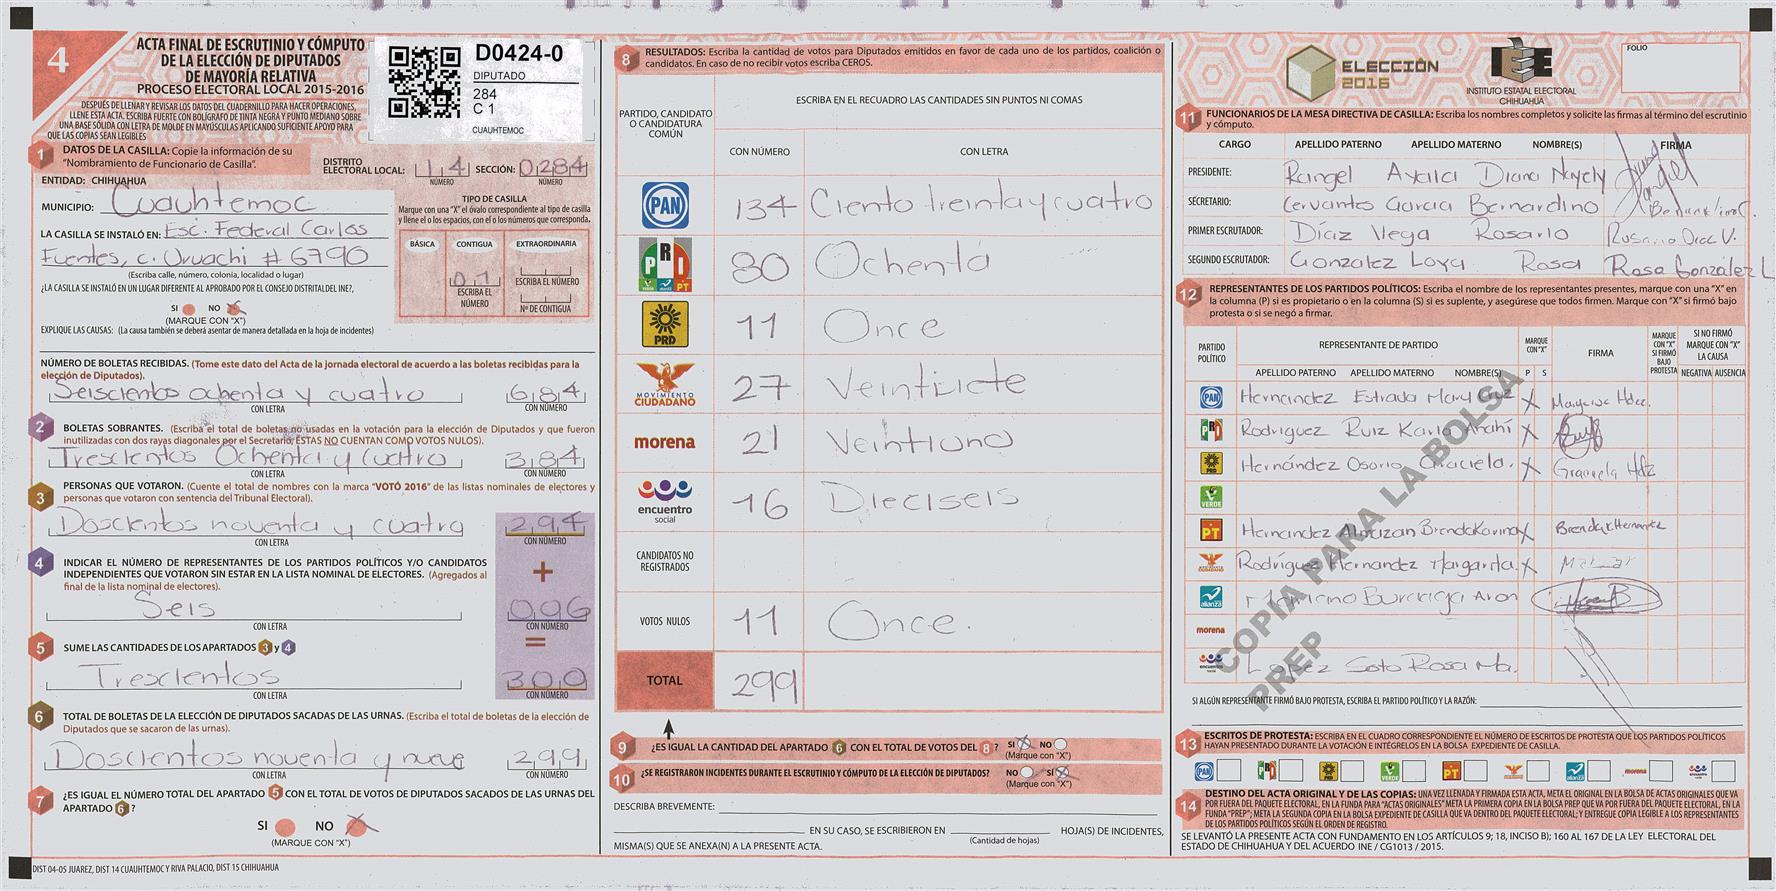 4
ACTA FINAL DE ESCRUTINIO Y CÓMPUTO
DE LA ELECCIÓN DE DIPUTADOS
DE MAYORÍA RELATIVA
PROCESO ELECTORAL LOCAL 2015-2016
DESPUÉS DE LLENAR Y REVISAR LOS DATOS DEL CUADERNILLO PARA HACER OPERACIONES,
LLENE ESTA ACTA. ESCRIBA FUERTE CON BOLÍGRAFO DE TINTA NEGRA Y PUNTO MEDIANO SOBRE
UNA BASE SÓLIDA CON LETRA DE MOLDE EN MAYÚSCULAS APLICANDO SUFICIENTE APOYO PARA
QUE LAS COPIAS SEAN LEGIBLES
D0424-0
DIPUTADO
284
C 1
CUAUHTEMOC
1 DATOS DE LA CASILLA: Copie la información de su
"Nombramiento de Funcionario de Casilla".
DISTRITO ELECTORAL LOCAL: 14 SECCIÓN: 0284
NÚMERO NÚMERO
ENTIDAD: CHIHUAHUA
MUNICIPIO: Cuauhtemoc
LA CASILLA SE INSTALÓ EN: Esc. Federal Carlos
Fuentes, c. Uruachi # 6790
(Escriba calle, número, colonia, localidad o lugar)
¿LA CASILLA SE INSTALÓ EN UN LUGAR DIFERENTE AL APROBADO POR EL CONSEJO DISTRITAL DEL INE?,
SI NO X
(MARQUE CON "X")
EXPLIQUE LAS CAUSAS: (La causa también se deberá asentar de manera detallada en la hoja de incidentes)
TIPO DE CASILLA
Marque con una "X" el óvalo correspondiente al tipo de casilla
y llene el o los espacios, con el o los números que corresponda.
BÁSICA CONTIGUA EXTRAORDINARIA
01
ESCRIBA EL NÚMERO ESCRIBA EL NÚMERO
Nº DE CONTIGUA
NÚMERO DE BOLETAS RECIBIDAS. (Tome este dato del Acta de la jornada electoral de acuerdo a las boletas recibidas para la
elección de Diputados).
Seiscientos ochenta y cuatro 684
CON LETRA CON NÚMERO
2 BOLETAS SOBRANTES. (Escriba el total de boletas no usadas en la votación para la elección de Diputados y que fueron
inutilizadas con dos rayas diagonales por el Secretario, ESTAS NO CUENTAN COMO VOTOS NULOS).
Trescientos Ochenta y cuatro 384
CON LETRA CON NÚMERO
3 PERSONAS QUE VOTARON. (Cuente el total de nombres con la marca "VOTÓ 2016" de las listas nominales de electores y
personas que votaron con sentencia del Tribunal Electoral).
Doscientos noventa y cuatro 294
CON LETRA CON NÚMERO
4 INDICAR EL NÚMERO DE REPRESENTANTES DE LOS PARTIDOS POLÍTICOS Y/O CANDIDATOS
INDEPENDIENTES QUE VOTARON SIN ESTAR EN LA LISTA NOMINAL DE ELECTORES. (Agregados al
final de la lista nominal de electores).
+
Seis 006
CON LETRA CON NÚMERO
=
5 SUME LAS CANTIDADES DE LOS APARTADOS 3 y 4
Trescientos 300
CON LETRA CON NÚMERO
6 TOTAL DE BOLETAS DE LA ELECCIÓN DE DIPUTADOS SACADAS DE LAS URNAS. (Escriba el total de boletas de la elección de
Diputados que se sacaron de las urnas).
Doscientos noventa y nueve 299
CON LETRA CON NÚMERO
7 ¿ES IGUAL EL NÚMERO TOTAL DEL APARTADO 5 CON EL TOTAL DE VOTOS DE DIPUTADOS SACADOS DE LAS URNAS DEL
APARTADO 6?
SI NO X
(MARQUE CON "X")
DIST 04-05 JUAREZ, DIST 14 CUAUHTEMOC Y RIVA PALACIO, DIST 15 CHIHUAHUA
8 RESULTADOS: Escriba la cantidad de votos para Diputados emitidos en favor de cada uno de los partidos, coalición o
candidatos. En caso de no recibir votos escriba CEROS.
PARTIDO, CANDIDATO
O CANDIDATURA
COMÚN
ESCRIBA EN EL RECUADRO LAS CANTIDADES SIN PUNTOS NI COMAS
CON NÚMERO CON LETRA
PAN 134 Ciento treinta y cuatro
PRI VERDE alianza PT 80 Ochenta
PRD 11 Once
MOVIMIENTO CIUDADANO 27 Veintisiete
morena 21 Veintiuno
encuentro social 16 Dieciseis
CANDIDATOS NO REGISTRADOS
VOTOS NULOS 11 Once.
TOTAL 299
9 ¿ES IGUAL LA CANTIDAD DEL APARTADO 6 CON EL TOTAL DE VOTOS DEL 8? SI X NO
(Marque con "X")
10 ¿SE REGISTRARON INCIDENTES DURANTE EL ESCRUTINIO Y CÓMPUTO DE LA ELECCIÓN DE DIPUTADOS? NO SI X
(Marque con "X")
DESCRIBA BREVEMENTE:
EN SU CASO, SE ESCRIBIERON EN HOJA(S) DE INCIDENTES,
(Cantidad de hojas)
MISMA(S) QUE SE ANEXA(N) A LA PRESENTE ACTA.
ELECCIÓN 2016
IEE
INSTITUTO ESTATAL ELECTORAL
CHIHUAHUA
FOLIO
11 FUNCIONARIOS DE LA MESA DIRECTIVA DE CASILLA: Escriba los nombres completos y solicite las firmas al término del escrutinio
y cómputo.
CARGO APELLIDO PATERNO APELLIDO MATERNO NOMBRE(S) FIRMA
PRESIDENTE: Rangel Ayala Diana Nayely
SECRETARIO: Cervantes Garcia Bernardino
PRIMER ESCRUTADOR: Díaz Vega Rosario Rosario Diaz V.
SEGUNDO ESCRUTADOR: Gonzalez Loya Rosa Rosa González L
12 REPRESENTANTES DE LOS PARTIDOS POLÍTICOS: Escriba el nombre de los representantes presentes, marque con una "X" en
la columna (P) si es propietario o en la columna (S) si es suplente, y asegúrese que todos firmen. Marque con "X" si firmó bajo
protesta o si se negó a firmar.
PARTIDO POLÍTICO REPRESENTANTE DE PARTIDO MARQUE CON "X" FIRMA MARQUE CON "X" SI FIRMÓ BAJO PROTESTA SI NO FIRMÓ MARQUE CON "X" LA CAUSA
APELLIDO PATERNO APELLIDO MATERNO NOMBRE(S) P S NEGATIVA AUSENCIA
PAN Hernandez Estrada Mary Cruz X
PRI Rodriguez Ruiz Karla Anahí X
PRD Hernández Osorio Graciela. X Graciela Hdz
VERDE
PT Hernandez Almazan Brenda Karina X
MOVIMIENTO CIUDADANO Rodríguez Hernandez Margarita. X
alianza Aron
morena
encuentro social López Soto Rosa Ma.
COPIA PARA LA BOLSA
PREP
SI ALGÚN REPRESENTANTE FIRMÓ BAJO PROTESTA, ESCRIBA EL PARTIDO POLÍTICO Y LA RAZÓN:
13 ESCRITOS DE PROTESTA: ESCRIBA EN EL CUADRO CORRESPONDIENTE EL NÚMERO DE ESCRITOS DE PROTESTA QUE LOS PARTIDOS POLÍTICOS
HAYAN PRESENTADO DURANTE LA VOTACIÓN E INTÉGRELOS EN LA BOLSA EXPEDIENTE DE CASILLA.
PAN PRI PRD VERDE PT alianza morena encuentro social
14 DESTINO DEL ACTA ORIGINAL Y DE LAS COPIAS: UNA VEZ LLENADA Y FIRMADA ESTA ACTA, META EL ORIGINAL EN LA BOLSA DE ACTAS ORIGINALES QUE VA
POR FUERA DEL PAQUETE ELECTORAL, EN LA FUNDA PARA "ACTAS ORIGINALES" META LA PRIMERA COPIA EN LA BOLSA PREP QUE VA POR FUERA DEL PAQUETE ELECTORAL, EN LA
FUNDA "PREP"; META LA SEGUNDA COPIA EN LA BOLSA EXPEDIENTE DE CASILLA QUE VA DENTRO DEL PAQUETE ELECTORAL; Y ENTREGUE COPIA LEGIBLE A LOS REPRESENTANTES
DE LOS PARTIDOS POLÍTICOS SEGÚN EL ORDEN DE REGISTRO.
SE LEVANTÓ LA PRESENTE ACTA CON FUNDAMENTO EN LOS ARTÍCULOS 9; 18, INCISO B); 160 AL 167 DE LA LEY ELECTORAL DEL
ESTADO DE CHIHUAHUA Y DEL ACUERDO INE / CG1013 / 2015.